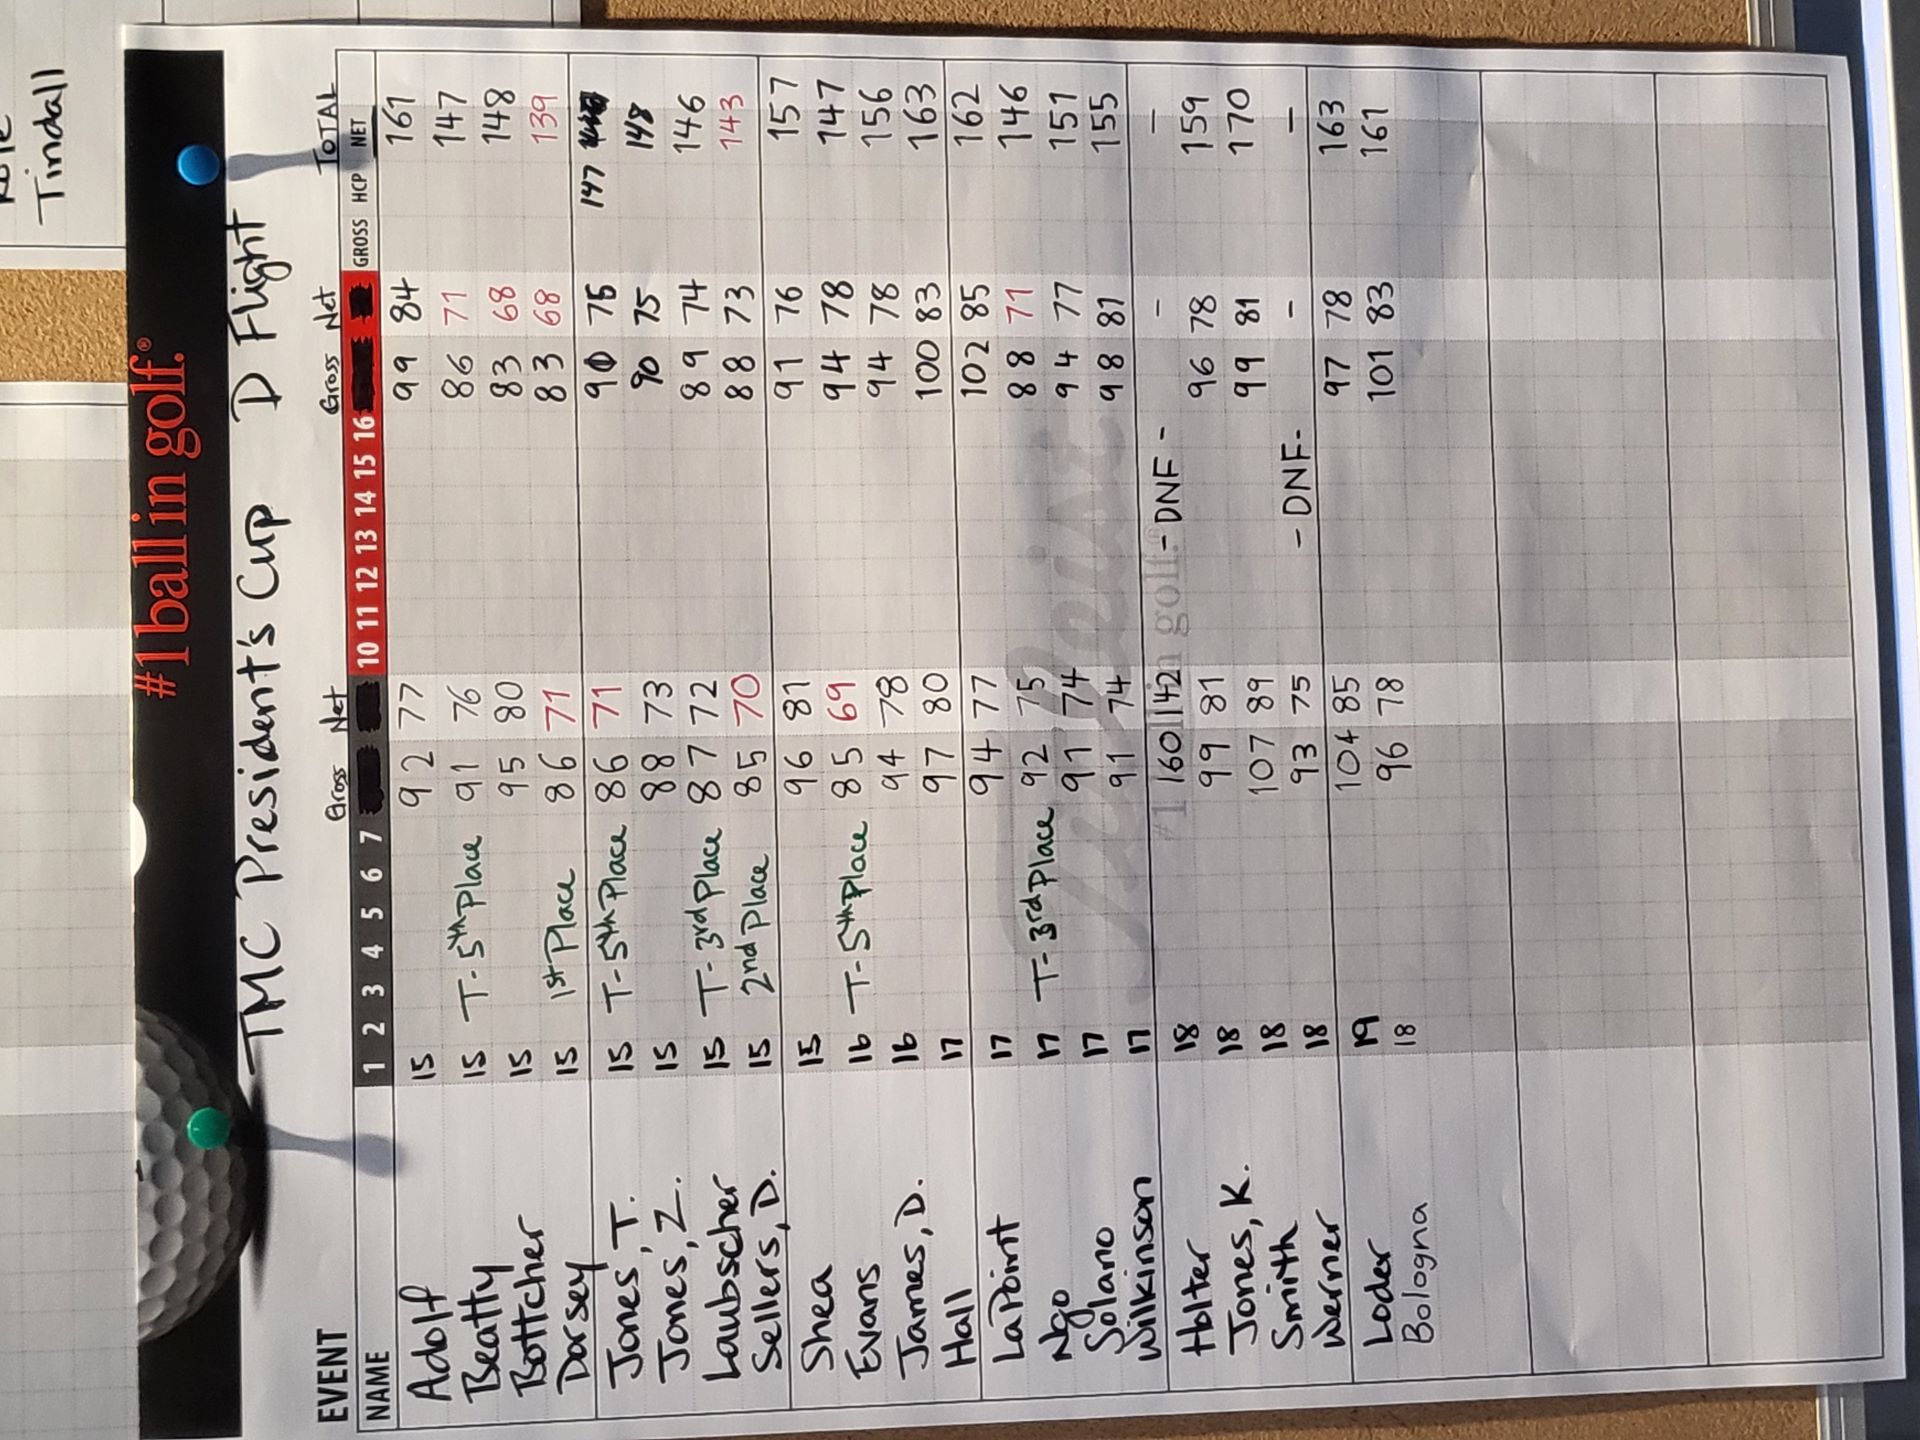 Tindall
#1 ball in golf.®
TMC President's Cup D Flight
Gross Net Gross Net TOTAL
EVENT
NAME 1 2 3 4 5 6 7 10 11 12 13 14 15 16 GROSS HCP NET
Adolf 15 92 77 99 84 161
Beatty 15 T-5th Place 91 76 86 71 147
Bottcher 15 95 80 83 68 148
Dorsey 15 1st Place 86 71 83 68 139
Jones, T. 15 T-5th Place 86 71 90 147
Jones, Z. 15 88 73 90 75 148
Laubscher 15 T-3rd Place 87 72 89 74 146
Sellers, D. 15 2nd Place 85 70 88 73 143
Shea 15 96 81 91 76 157
Evans 16 T-5th Place 85 69 94 78 147
James, D. 16 94 78 94 78 156
Hall 17 97 80 100 83 163
LaPoint 17 94 77 102 85 162
Ngo 17 T-3rd Place 92 75 88 71 146
Solano 17 91 74 94 77 151
Wilkinson 17 91 74 98 81 155
Holter 18 160 142 -DNF- - -
Jones, K. 18 99 81 96 78 159
Smith 18 107 89 99 81 170
Werner 18 93 75 -DNF- - -
Loder 19 104 85 97 78 163
Bologna 18 96 78 101 83 161
Titleist
#1 ball in golf.®